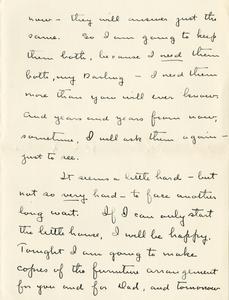 now - they will answer just the
same. So I am going to keep
them both, because I need them
both, my Darling - I need them
more than you will ever know.
And years and years from now,
sometime, I will ask them again -
just to see.
It seems a little hard - but
not so very hard - to face another
long wait. If I can only start
the little house, I will be happy.
Tonight I am going to make
copies of the furniture arrangement
for you and for Dad, and tomorrow